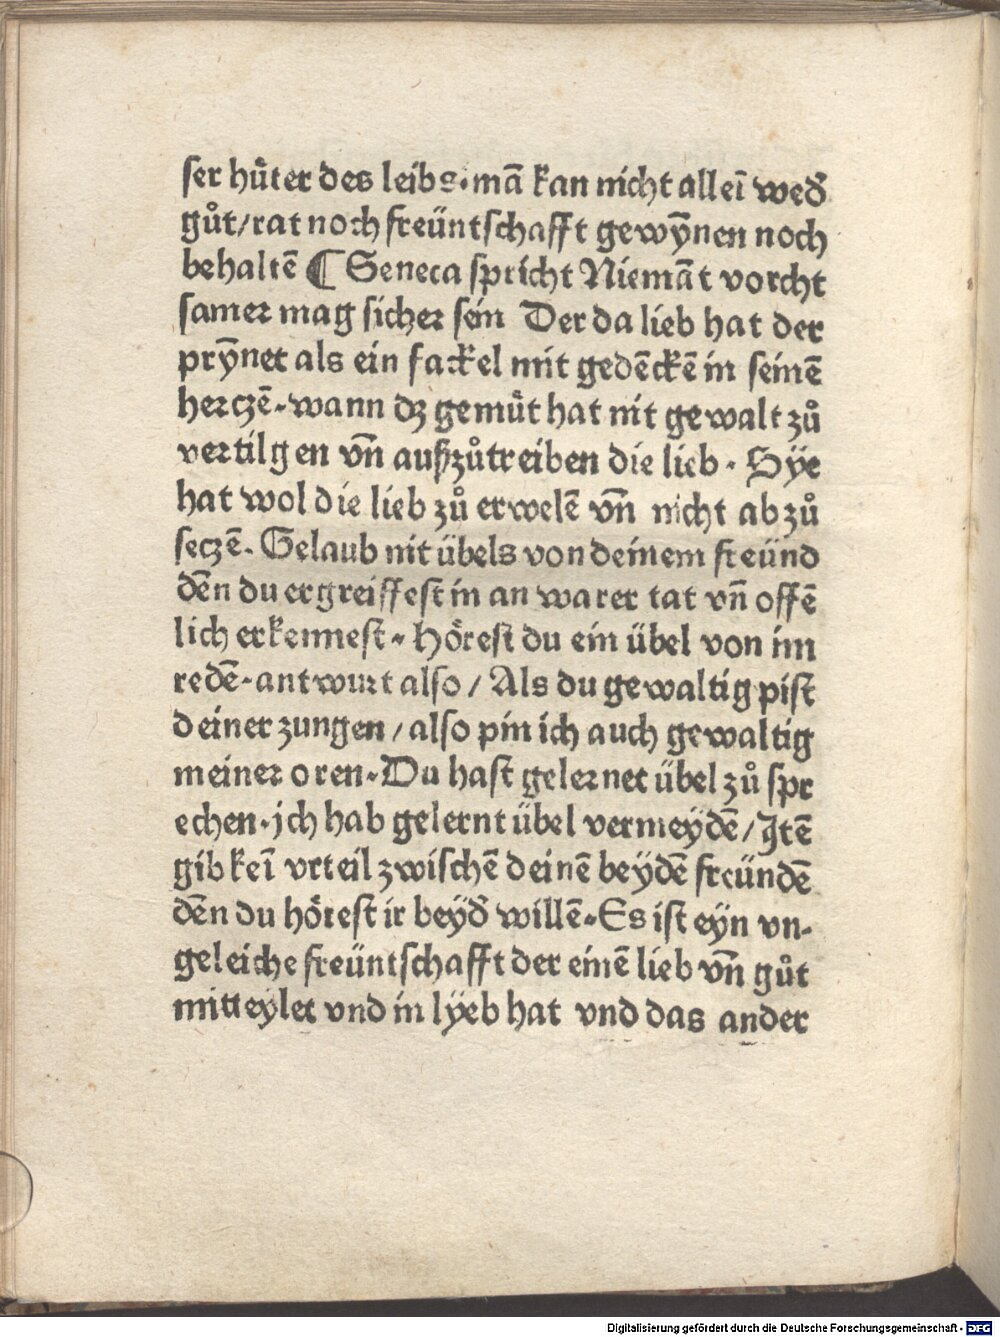 ſer hůter des leibs·mā kan nicht alleī wed̄
gůt/rat noch freüntſchafft gewȳnen noch
behaltē ¶ Seneca ſpricht Niemāt vorcht
ſamer mag ſicher ſein Der da lieb hat der
prȳnet als ein fackel mit gedēckē in ſeinē
herczē·wann dz gemüt hat nit gewalt zů
vertilgen vn̄ auſzzůtreiben die lieb· Sÿe
hat wol die lieb zů erwelē vn̄ nicht ab zů
ſeczē· Gelaub nit übels von deinem freünd
dēn du ergreiffeſt in an warer tat vn̄ offē
lich erkenneſt· Höreſt du ein übel von im
redē·antwurt alſo/Als du gewaltig piſt
deiner zungen/alſo pin ich auch gewaltig
meiner oren·Du haſt gelernet übel zů ſpr
echen·jch hab gelernt übel vermeydē/Jtē
gib keī vrteil zwiſchē deinē beÿdē freündē
dēn du höreſt ir beÿd̄ willē·Es iſt eÿn vn-
geleiche freüntſchafft der einē lieb vn̄ gůt
mitteÿlet vnd in lÿeb hat vnd das ander
Digitalisierung gefördert durch die Deutsche Forschungsgemeinschaft - DFG